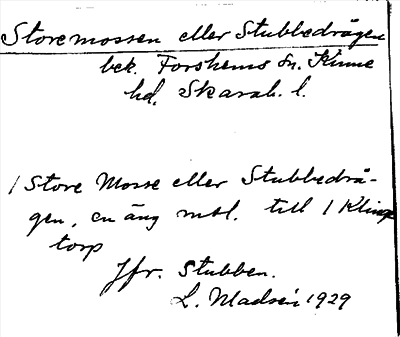 Storemossen eller Stubbedrågen
bek. Forshems sn. Kinne
hd. Skarab. l.
/ Store Mosse eller Stubbedrå-
gen, en äng mbl. till / Kling
torp
Jfr. Stubben.
L. Madsén 1929